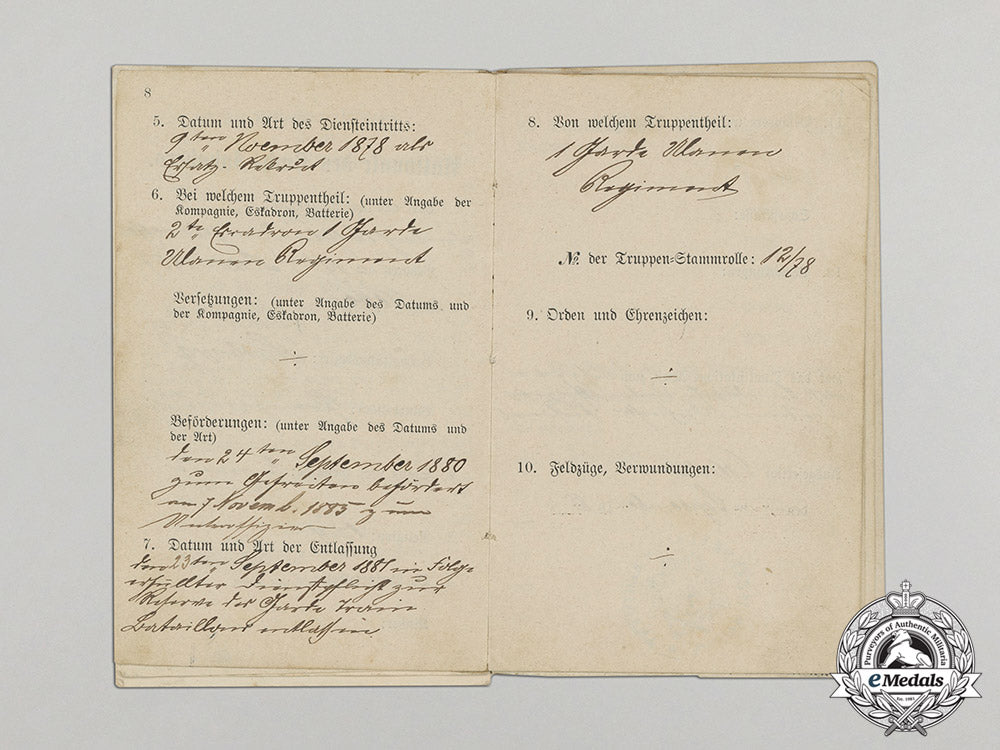 8
5. Datum und Art des Diensteintritts:
9ten November 1878 als
Ersatz-Rekrut
6. Bei welchem Truppentheil: (unter Angabe der
Kompagnie, Eskadron, Batterie)
2te Escadron 1 Garde
Ulanen Regiment
Versetzungen: (unter Angabe des Datums und
der Kompagnie, Eskadron, Batterie)
÷
Beförderungen: (unter Angabe des Datums und
der Art)
den 24ten September 1880
zum Gefreiten befördert
am 7 Novemb. 1885 zum
Unteroffizier
7. Datum und Art der Entlassung
den 23ten September 1881 in Folge
erfüllter Dienstpflicht zur
Reserve des Garde Train
Bataillons entlassen
8. Von welchem Truppentheil:
1 Garde Ulanen
Regiment
№ der Truppen-Stammrolle: 12/78
9. Orden und Ehrenzeichen:
÷
10. Feldzüge, Verwundungen:
÷
Purveyors of Authentic Militaria
eMedals
Est. 1985